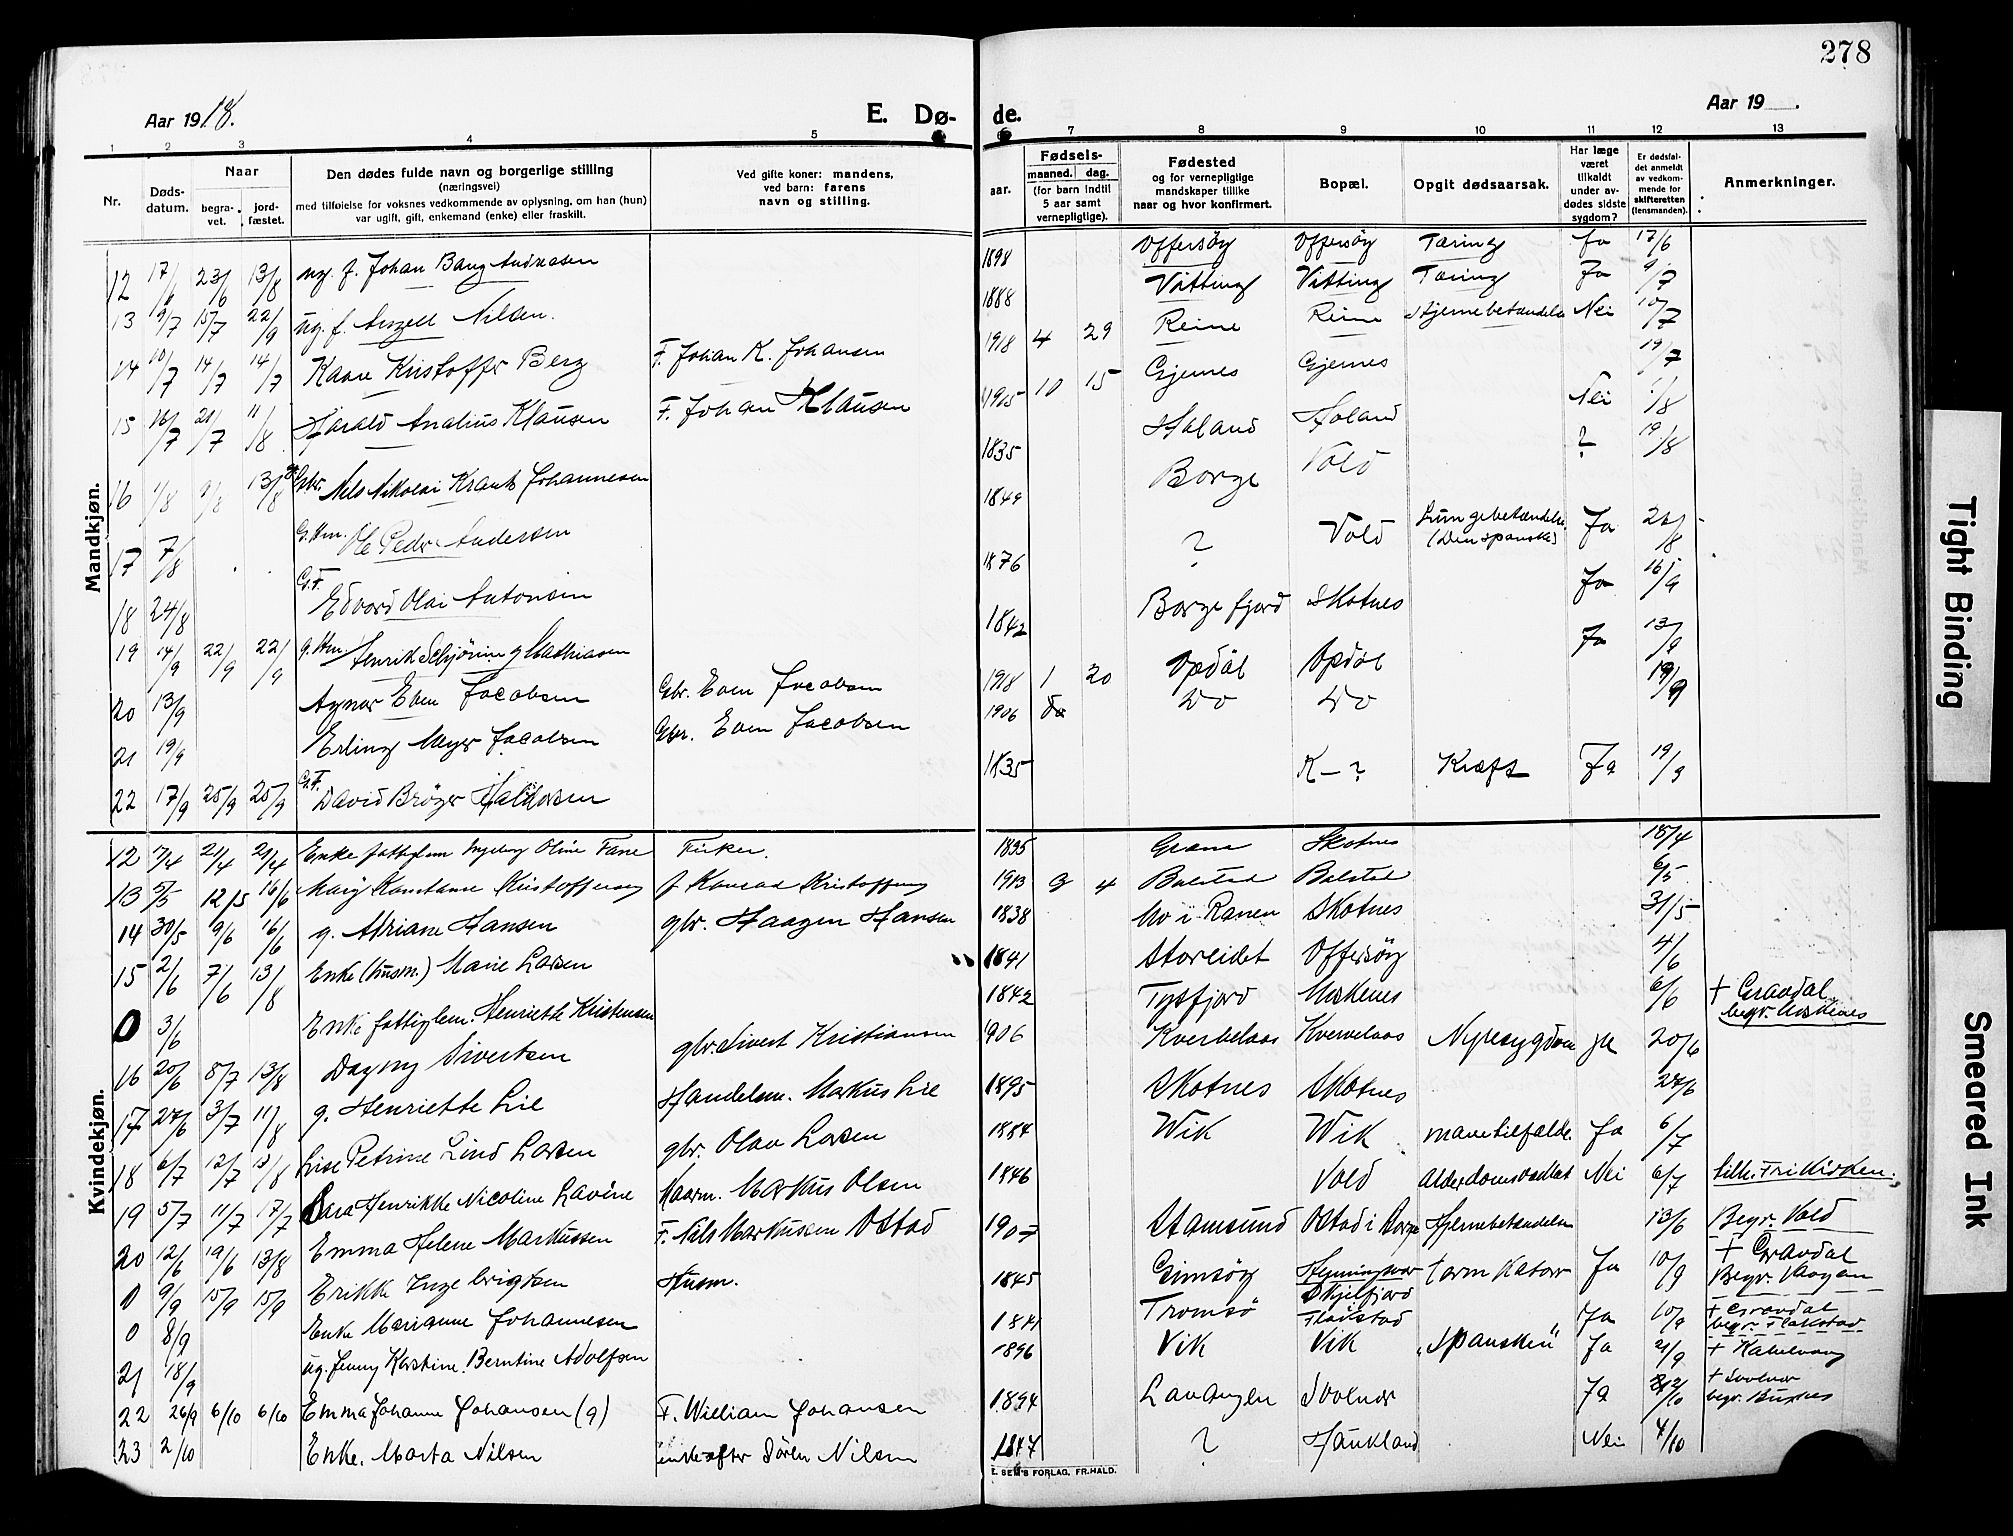 278
Aar 1918.
E. Dø-
de.
Aar 19 .
1 2 3 4 5 6 7 8 9 10 11 12 13
Nr. Døds-datum. Naar begra-vet. jord-fæstet. Den dødes fulde navn og borgerlige stilling (næringsvei) med tilføielse for voksnes vedkommende av oplysning, om han (hun) var ugift, gift, enkemand (enke) eller fraskilt. Ved gifte koner: mandens, ved barn: farens navn og stilling. aar. Fødsels- maaned. dag. (for barn indtil 5 aar samt vernepligtige). Fødested og for vernepligtige mandskaper tillike naar og hvor konfirmert. Bopæl. Opgit dødsaarsak. Har læge været tilkaldt under av-dødes sidste sygdom? Er dødsfal-det anmeldt av vedkom-mende for skifteretten (lensmanden). Anmerkninger.
Mandkjøn.
12 17/6 23/6 13/8 ug. f. Johan Bang Andreasen 1898 Offersøy Offersøy Tæring Ja 17/6
13 9/7 15/7 22/9 ug. f. Nilsen. 1888 Vatting Vatting Tæring Ja 9/7
14 10/7 14/7 14/7 Kaare Kristoffer Berg F. Johan K. Johansen 1918 4 29 Reine Reine Hjernebetændelse Nei 10/7
15 16/7 21/7 11/8 Harald Analius Klausen F. Johan Klausen 1905 10 15 Gjernes Gjernes 19/7
16 1/8 9/8 13/8 Gbr. Nels Nikolai Krants Johannesen 1835 Holand Holand Nei 1/8
17 7/8 G. Hm. Ole Peder Andersen 1849 Borge Vold ? 19/8
18 24/8 G. F. Edvard Olai Antonsen 1876 ? Vold Lungebetændelse (Den spanske) Ja 26/8
19 14/9 22/9 22/9 g. Hm. Henrik Schjøning Mathiasen 1842 Borgefjord Skotnes Ja 16/9
20 13/9 Agnar Even Jacobsen Gbr. Even Jacobsen 1918 1 20 Opdøl Opdøl Ja 13/9
21 19/9 Erling Meyer Jacobsen Gbr. Even Jacobsen 1906 Do Do 19/9
22 17/9 25/9 25/9 G. F. David Brøger Haldorsen 1835 K-? Kræft Ja 19/9
Kvindekjøn.
12 7/4 21/4 21/4 Enke fattiglem Ingeborg Oline Fisker. 1835 Grane Skotnes 15/4
13 5/5 12/5 16/6 Mary Konstanse Kristoffersen f Konrad Kristoffersen 1913 9 4 Balstad Balstad 6/5
14 30/5 9/6 16/6 g. Adriane Hansen gbr. Haagen Hansen 1838 Mo i Ranen Skotnes 31/5
15 2/6 7/6 13/8 Enke (husm.) Marie Larsen 1841 Storeidet Offersøy 4/6
0 3/6 Enke fattiglem. Henriette Kristensen 1842 Tysfjord Moskenes 6/6 + Gravdal begr. Moskenes
16 20/6 8/7 13/8 Dagny Sivertsen gbr. Sivert Kristiansen 1906 Kvervelaas Kvervelaas Nyresygdom ja 20/6
17 27/6 3/7 11/8 g. Henriette Lie Handelsm. Markus Lie 1895 Skotnes Skotnes 27/6
18 6/7 12/7 13/8 Lise Petrine Lind Larsen gbr. Olav Larsen 1884 Wik Wik mavetilfælde. Ja 6/7
19 5/7 11/7 17/7 Sara Henrikke Nicoline Lavine Kaarm. Markus Olsen 1846 Vold Alderdomssvakhet Nei 6/7 tilh. Frikirken.
20 12/6 19/6 13/8 Emma Helene Markussen F. Nils Markussen Ostad 1907 Stamsund Ostad i Borge Hjernebetændelse 13/6 Begr. Vold
0 9/9 15/9 15/9 Erikke Ingebrigtsen Husm. 1845 Gimsøy Henningsvær Tarmkatarr Ja 10/9 + Gravdal Begr. Vaagan
0 8/9 Enke Marianne Johannesen 1841 Tromsø Skjelfjord Flakstad Ja 10/9 + Gravdal begr. Flakstad
21 18/9 ug. Jenny Karstine Berntine Adolfsen 1896 Vik Vik „Spansken" Ja 21/9 + Kabelvaag
22 26/9 6/10 6/10 Emma Johanne Johansen (g) F. William Johansen 1894 Lavangen Svolvær Ja 2/10 + Svolvær begr. Buksnes
23 2/10 Enke. Marta Nilsen enke efter Søren Nilsen 1847 ? Haukland Nei 4/10
E. SEM'S FORLAG, FR.HALD.
Tight Binding
Smeared Ink